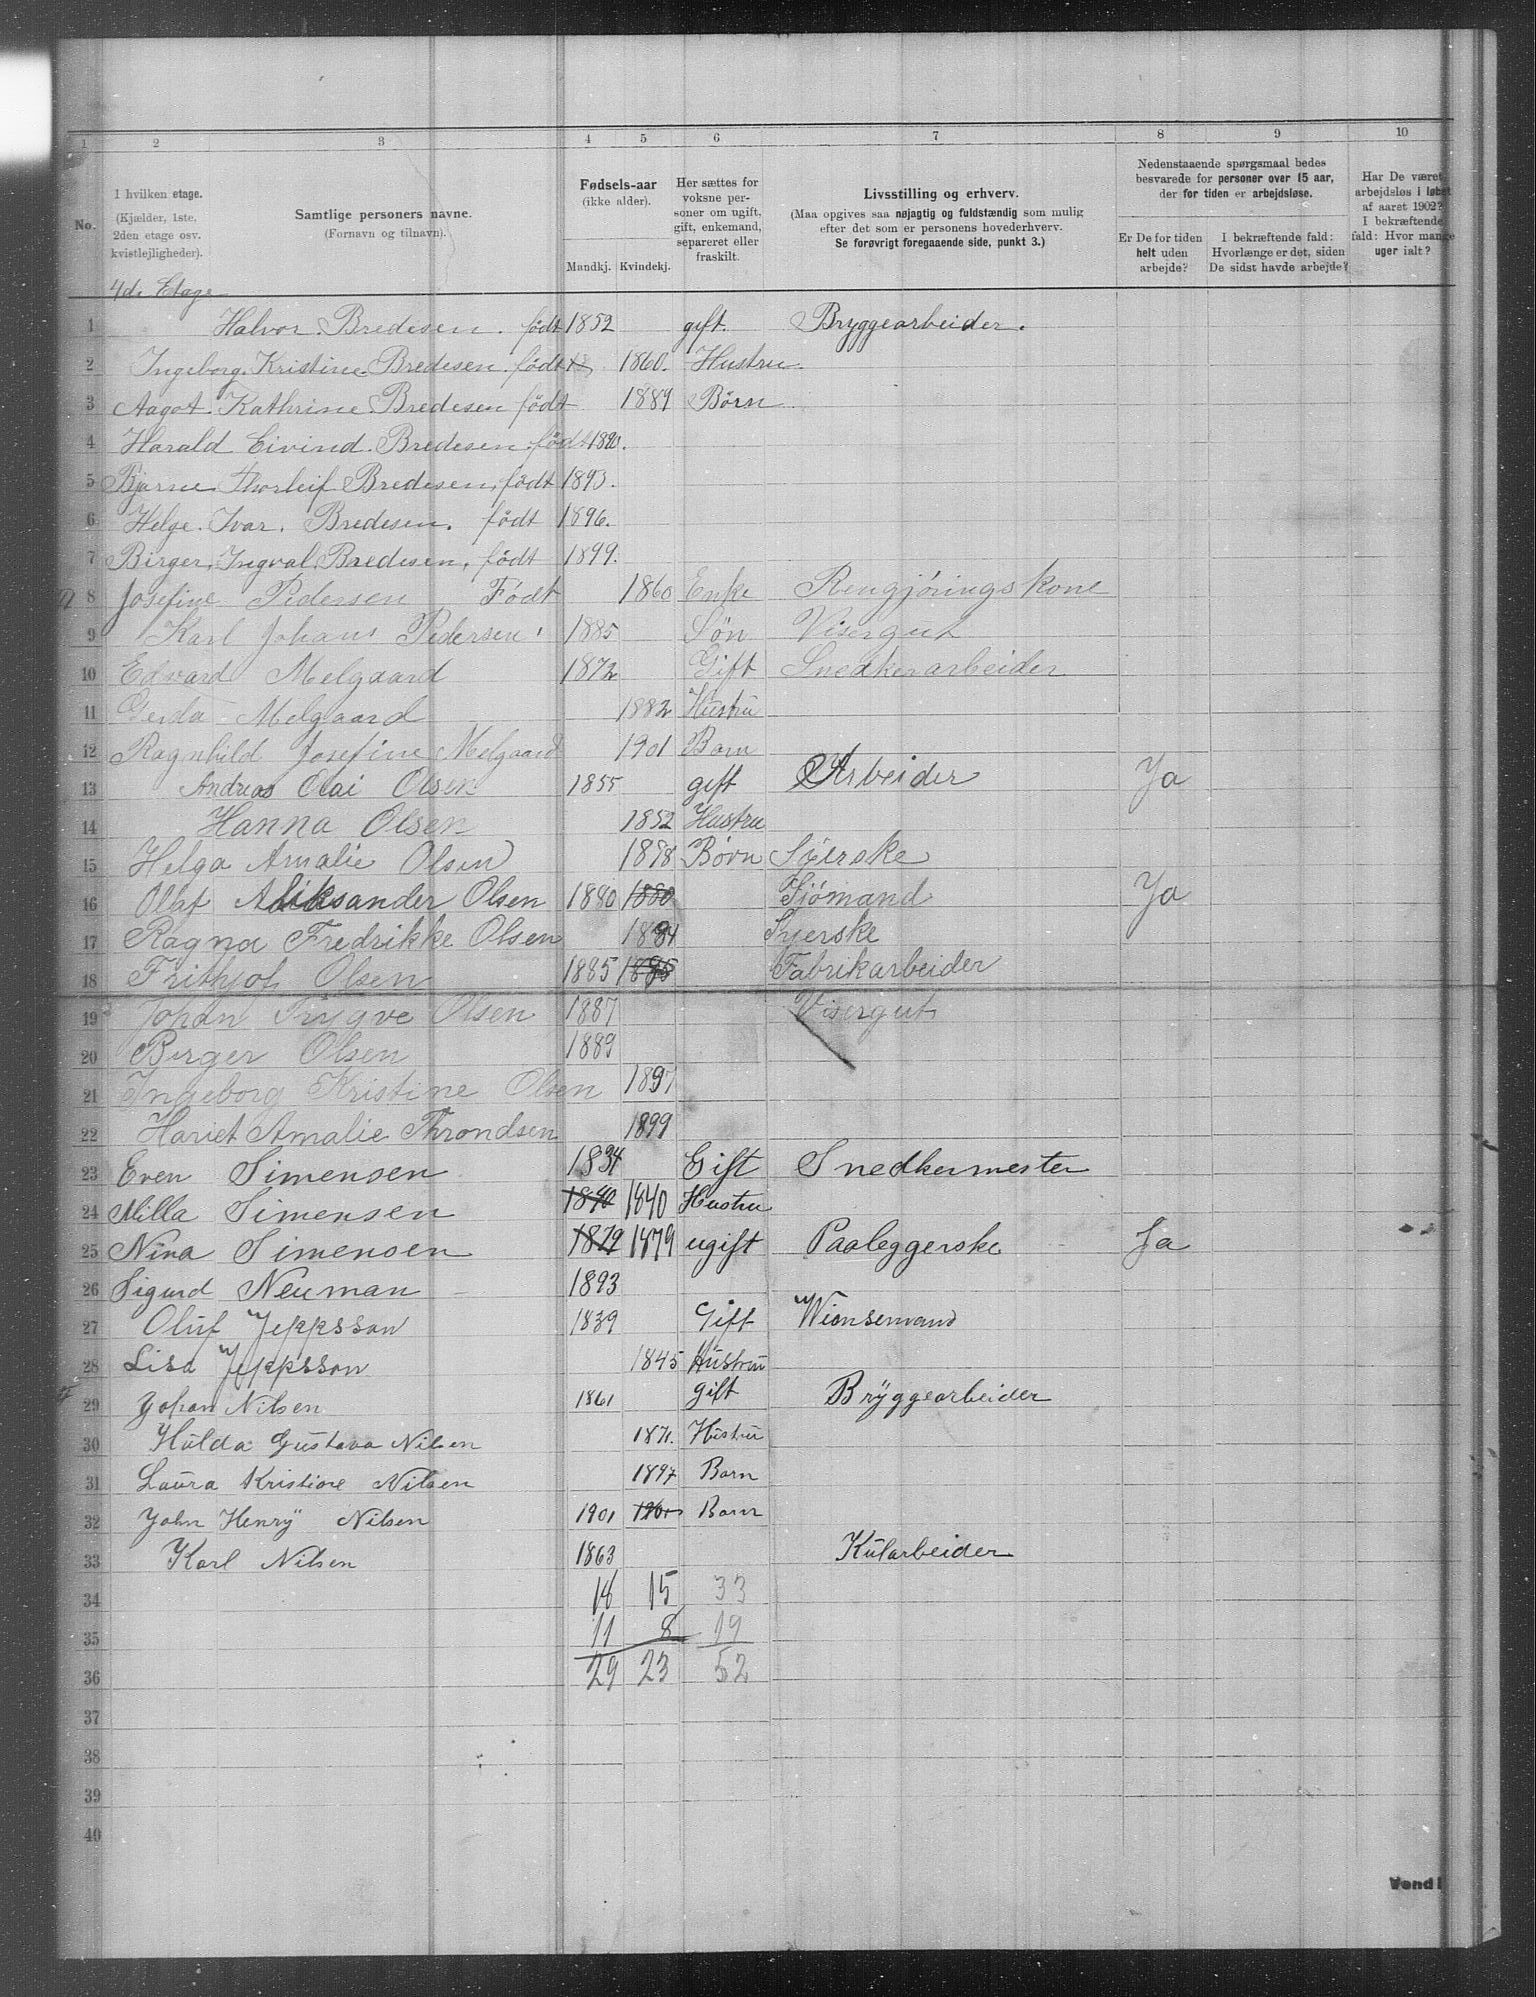 1 2 3 4 5 6 7 8 9 10
No.
I hvilken etage.
(Kjælder, 1ste, 2den etage osv. kvistlejligheder).
Samtlige personers navne.
(Fornavn og tilnavn).
Fødsels-aar
(ikke alder).
Mandkj. Kvindekj.
Her sættes for voksne personer om ugift, gift, enkemand, separeret eller fraskilt.
Livsstilling og erhverv.
(Maa opgives saa nøjagtig og fuldstændig som mulig efter det som er personens hovederhverv.
Se forøvrigt foregaaende side, punkt 3.)
Nedenstaaende spørgsmaal bedes besvarede for personer over 15 aar, der for tiden er arbejdsløse.
Er De for tiden helt uden arbejde?
I bekræftende fald: Hvorlænge er det, siden De sidst havde arbejde?
Har De været arbejdsløs i løbet af aaret 1902? I bekræftende fald: Hvor mange uger ialt?
4de Etage
1 Halvor Bredesen. født 1852 gift. Bryggearbeider.
2 Ingeborg Kristine Bredesen. født 1860. Hustru.
3 Aagot Kathrine Bredesen født 1889 Børn
4 Harald Eivind Bredesen født 1890.
5 Bjarne Thorleif Bredesen, født 1893.
6 Helge Ivar. Bredesen. født 1896.
7 Birger, Ingval, Bredesen, født 1899.
8 Josefine Pedersen Født 1860 Enke Rengjøringskone
9 Karl Johans Pedersen 1885 Søn Visergut
10 Edvard Melgaard 1872 Gift Snedkerarbeider
11 Gerda Melgaard 1882 Hustru
12 Ragnhild Josefine Melgaard 1901 Barn
13 Andreas Olai Olsen 1855 gift Arbeider Ja
14 Hanna Olsen 1852 Hustru
15 Helga Amalie Olsen 1878 Børn Sÿerske
16 Olaf Aleksander Olsen 1880 1880 Sjömand Ja
17 Ragna Fredrikke Olsen 1884 Syerske
18 Frithjof Olsen 1885 1885 Fabrikarbeider
19 Johan Trygve Olsen 1887 Visergut
20 Birger Olsen 1889
21 Ingeborg Kristine Olsen 1897
22 Hariet Amalie Throndsen 1899
23 Even Simensen 1834 Gift Snedkermester
24 Milla Simensen 1840 1840 Hustru
25 Nina Simensen 1879 1879 ugift Paaleggerske Ja
26 Sigurd Neuman 1893
27 Oluf Jeppsson 1839 Gift
28 Lisa Jeppsson 1845 Hustru
29 Johan Nilsen 1861 gift Brÿggearbeider
30 Hulda Gustava Nilsen 1871. Hustru
31 Laura Kristine Nilsen 1897 Barn
32 John Henrÿ Nilsen 1901 1901 Barn
33 Karl Nilsen 1863 Kularbeider
34 18 15 33
35 11 8 19
36 29 23 52
37
38
39
40
Vend!